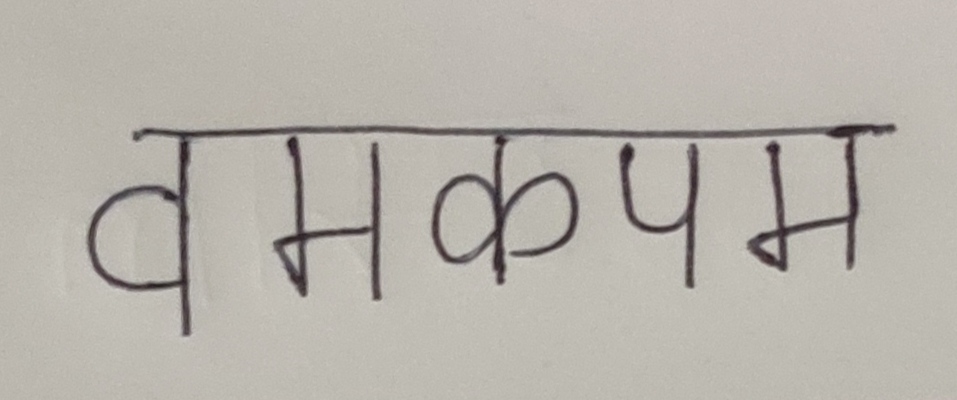 वमकपम